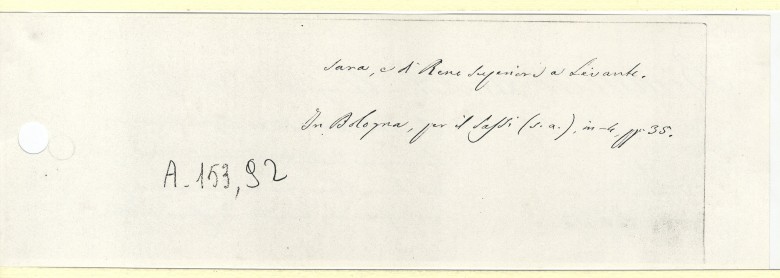 sara, e di Reno superiore a Levante.
In Bologna, per il Sassi (s. a.), in-4, pp. 35.
A-153,92